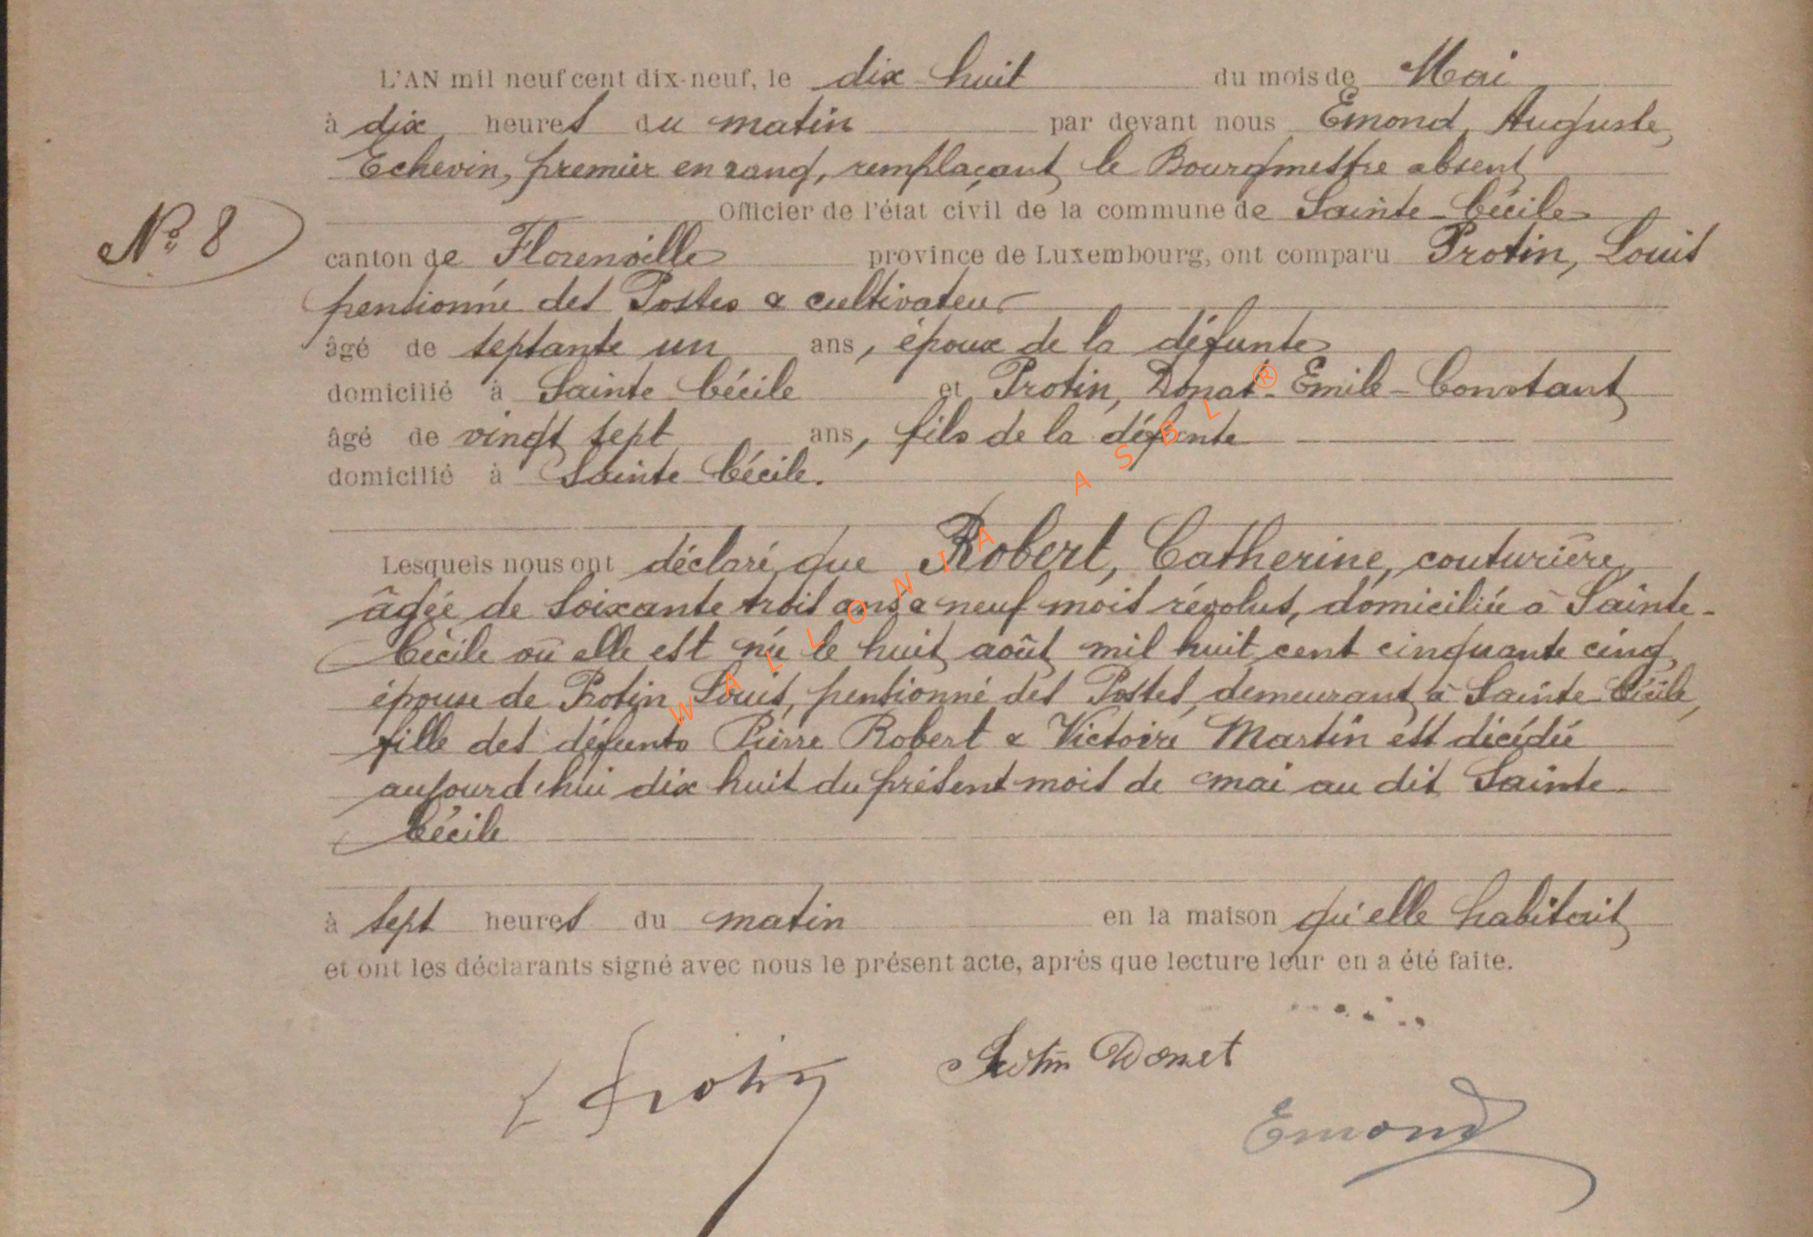 L'AN mil neuf cent dix-neuf, le dix-huit du mois de Mai
à dix heures du matin par devant nous Emond, Auguste,
Echevin, premier en rang, remplaçant le Bourgmestre absent
Officier de l'état civil de la commune de Sainte-Cécile
N° 8
canton de Florenville province de Luxembourg, ont comparu Protin, Louis
pensionné des Postes & cultivateur
âgé de septante un ans, époux de la défunte
domicilié à Sainte Cécile et Protin, Donat-Emile-Constant
âgé de vingt sept ans, fils de la défunte
domicilié à Sainte Cécile.
Lesquels nous ont déclaré que Robert, Catherine, couturière,
âgée de soixante trois ans & neuf mois révolus, domiciliée à Sainte-
Cécile où elle est née le huit août mil huit cent cinquante cinq,
épouse de Protin Louis, pensionné des Postes, demeurant à Sainte-Cécile,
fille des défunts Pierre Robert & Victoire Martin est décédée
aujourd'hui dix huit du présent mois de mai au dit Sainte-
Cécile
à sept heures du matin en la maison qu'elle habitait
et ont les déclarants signé avec nous le présent acte, après que lecture leur en a été faite.
L Protin Protin Donat
Emond
WALLONIA ASBL ®